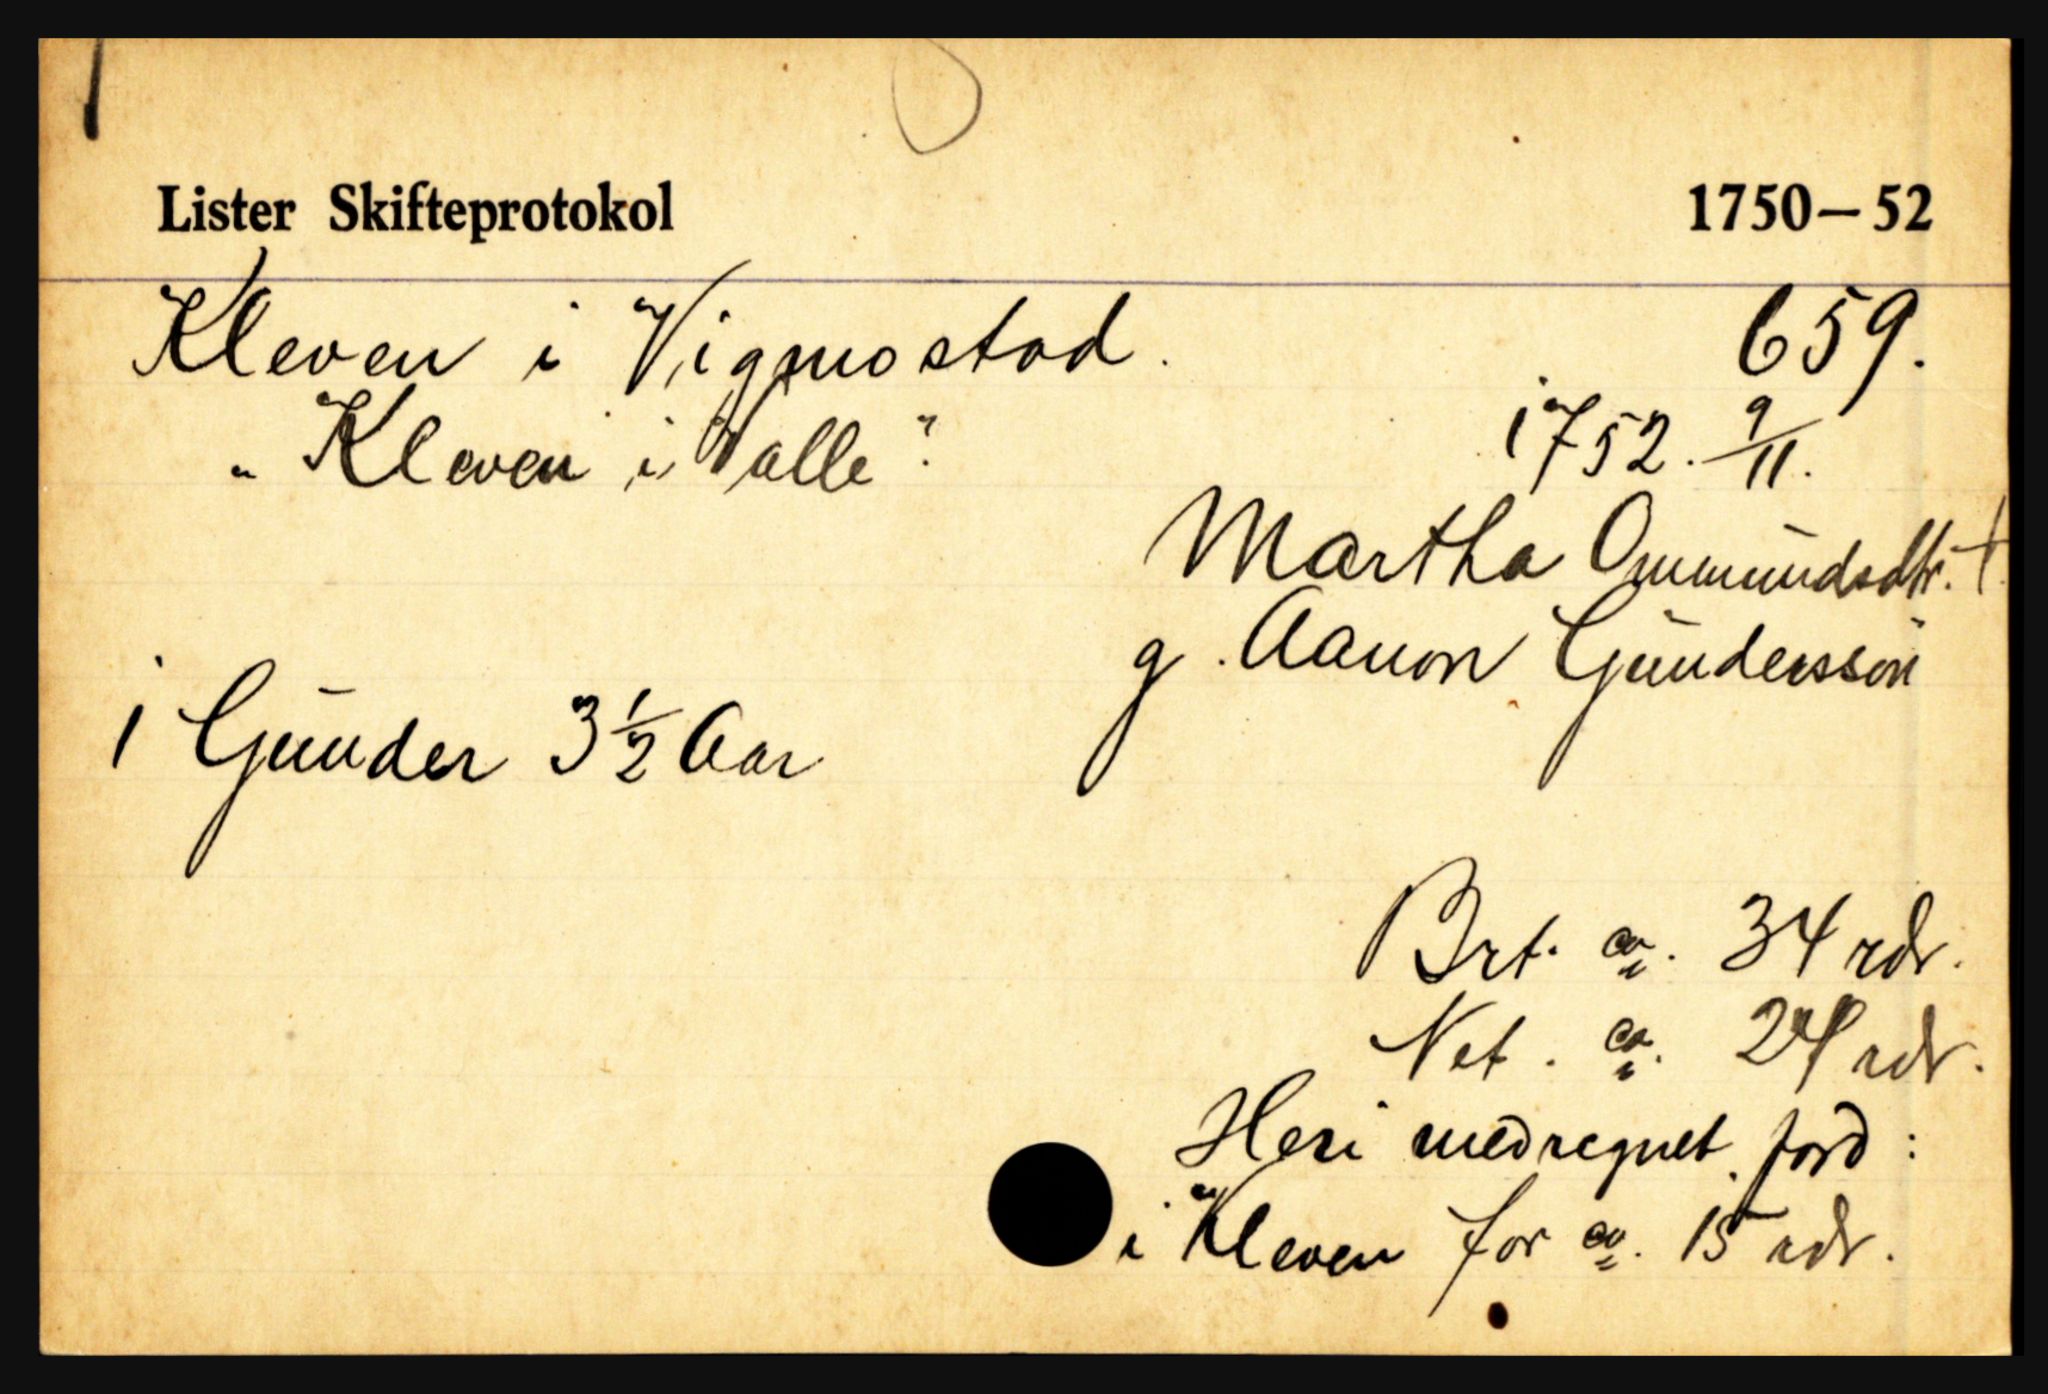 Lister Skifteprotokol 1750–52
Kleven i Vigmostad. 659.
"Kleven i Valle". 1752. 9/11.
Martha Ommundsdtr. †.
g. Aanon Gunderssøn
1 Gunder 3 1/2 Aar
Brt. ca. 34 rdr.
Net. ca. 24 rdr.
Heri medregnet jord:
i Kleven for ca. 15 rdr.